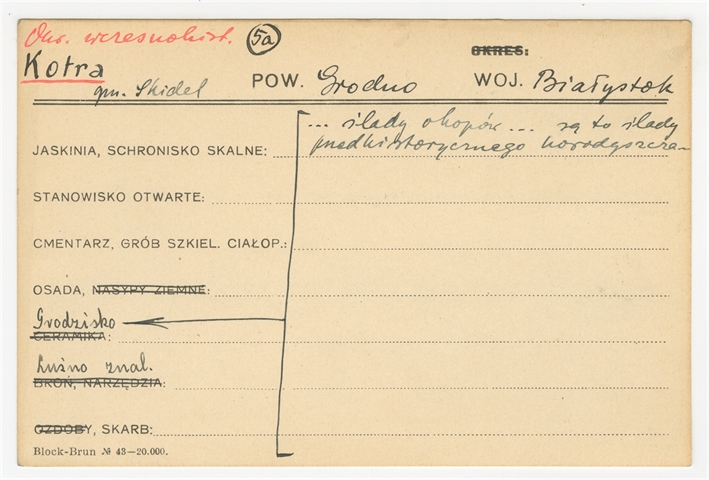 Okr. wczesnohist. 5a OKRES:
Kotra
gm. Skidel POW. Grodno WOJ. Białystok
... ślady okopów ... są to ślady
JASKINIA, SCHRONISKO SKALNE: przedhistorycznego horodyszcza
STANOWISKO OTWARTE:
CMENTARZ, GRÓB SZKIEL. CIAŁOP.:
OSADA, NASYPY ZIEMNE:
Grodzisko
CERAMIKA:
Luźno znal.
BROŃ, NARZĘDZIA:
OZDOBY, SKARB:
Block-Brun № 43—20.000.